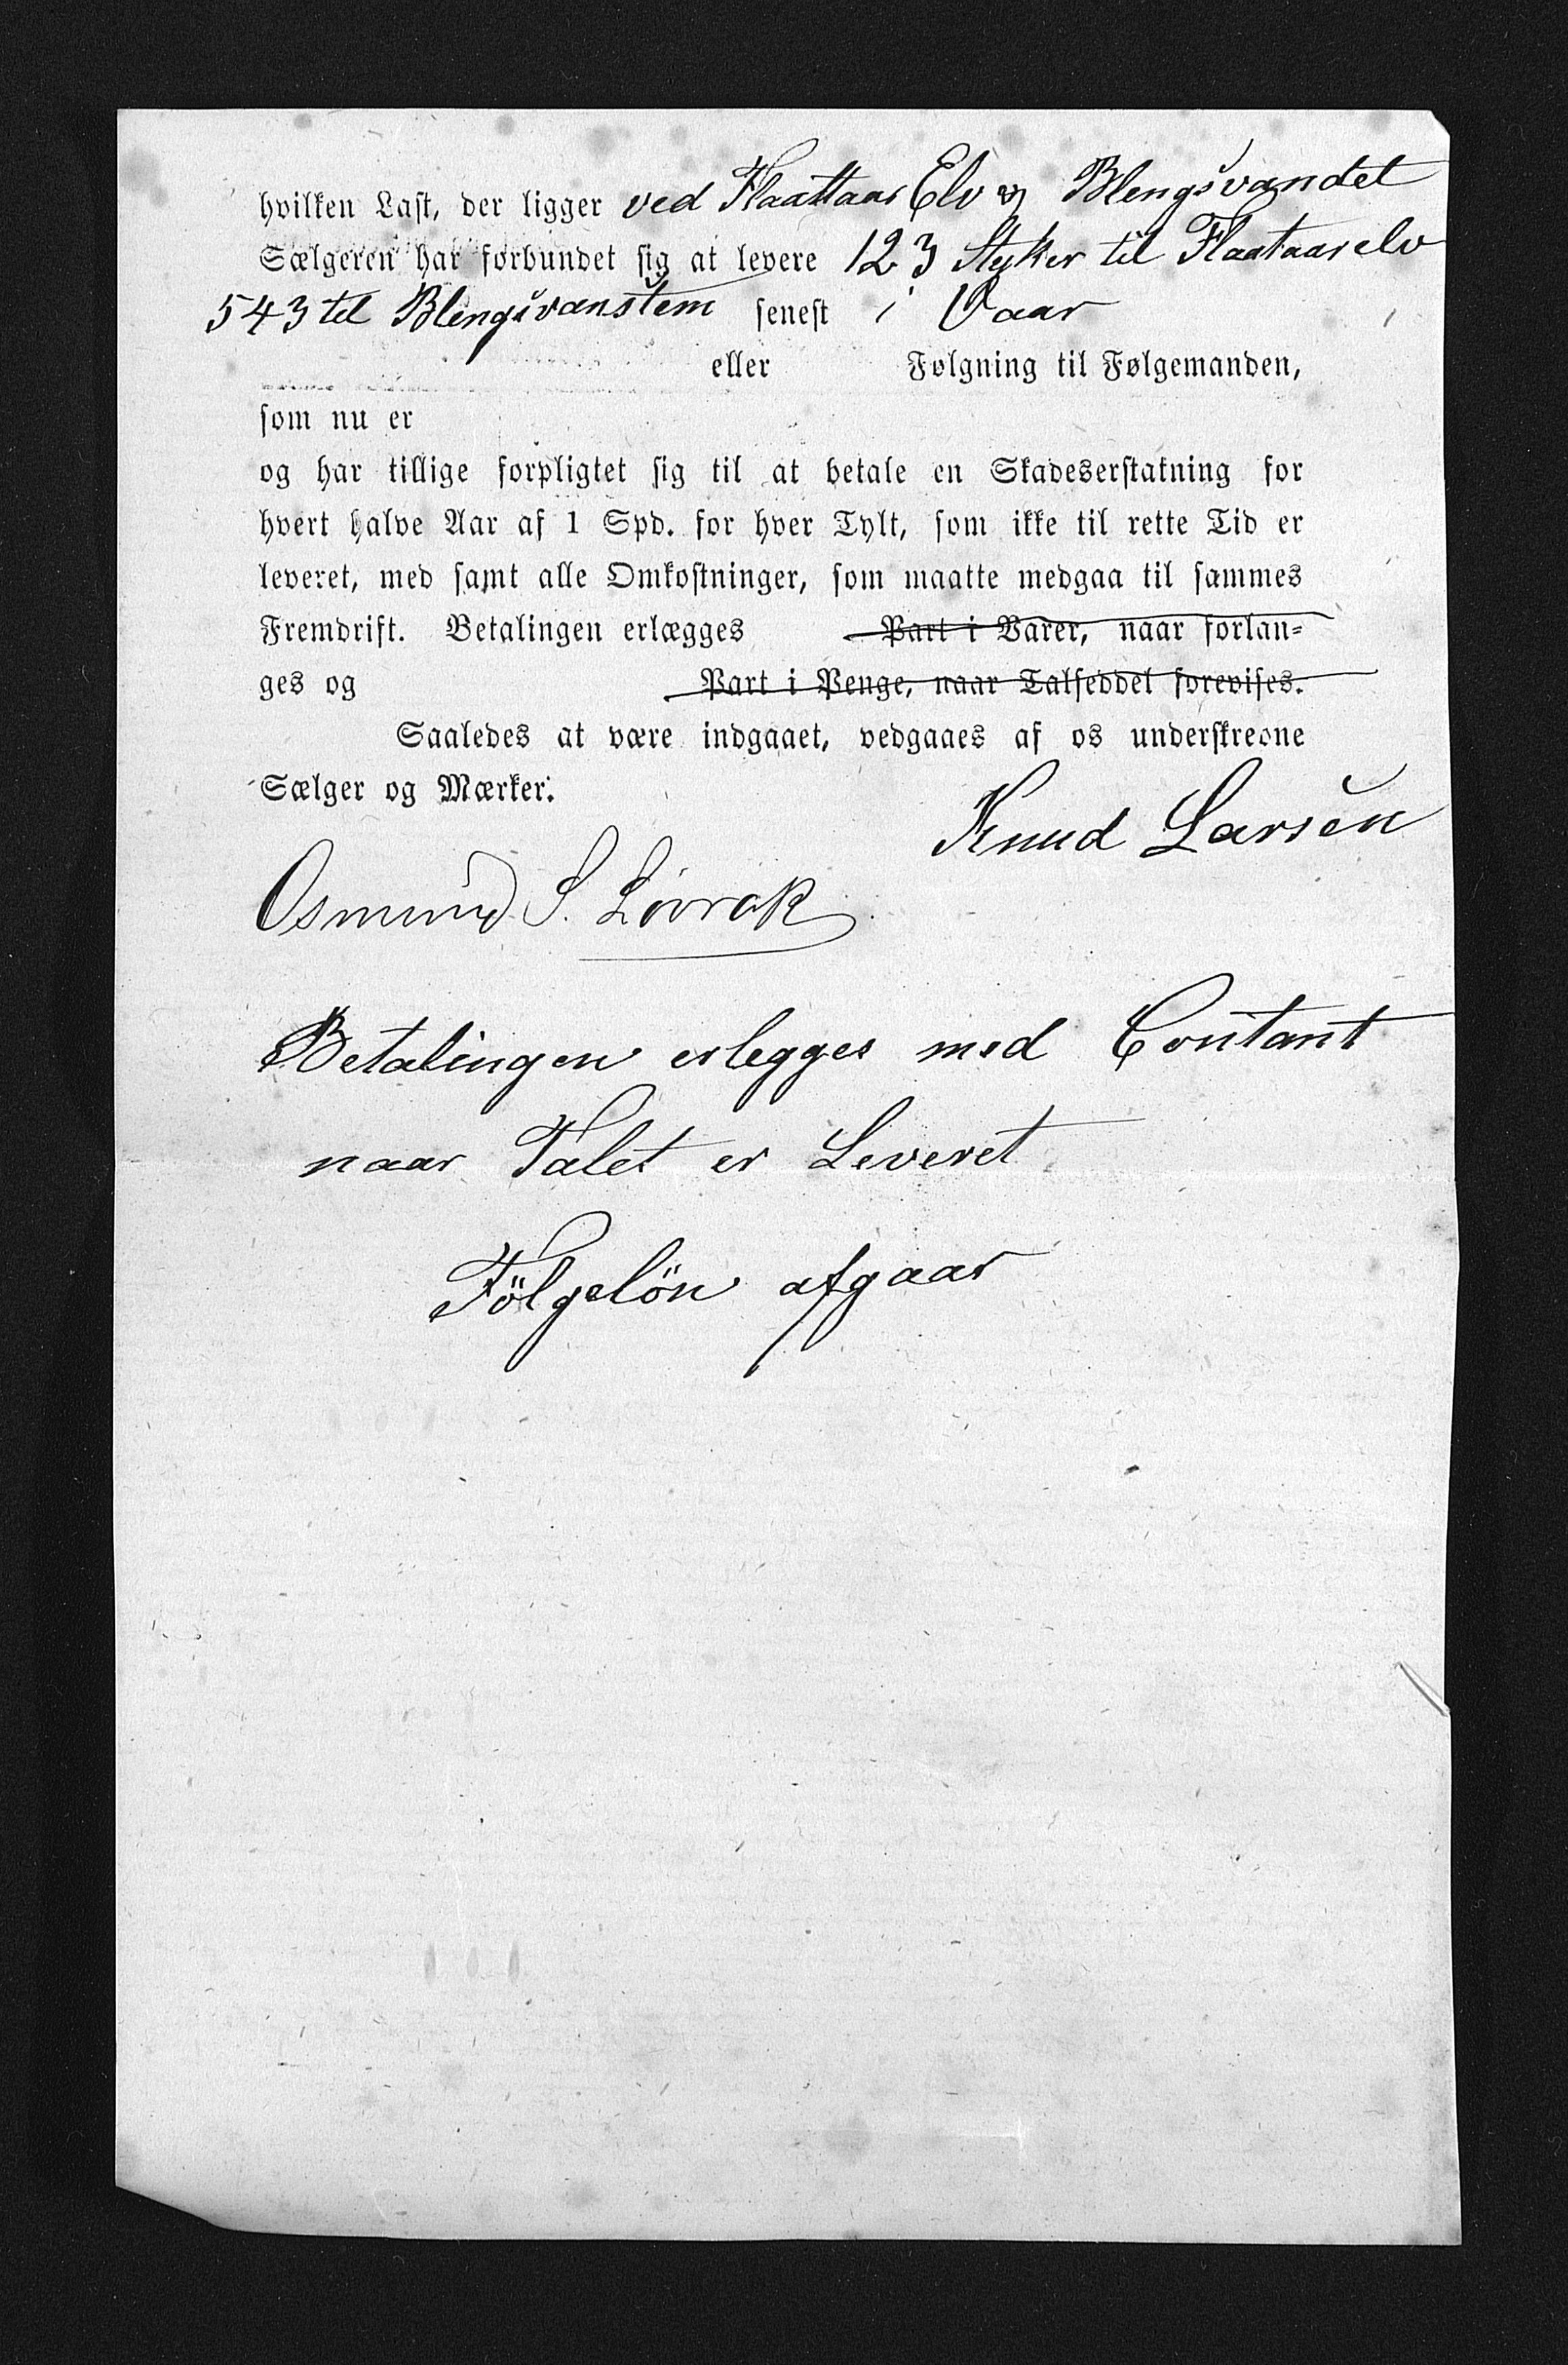 hvilken Last, der ligger ved Flaattaas Elv og Blengsvandet
Sælgeren har forbundet sig at levere 123 Styker til Flaataaselv
543 til Blengsvanstem senest i Vaar
eller Følgning til Følgemanden,
som nu er
og har tillige forpligtet sig til at betale en Skadeserstatning for
hvert halve Aar af 1 Spd. for hver Tylt, som ikke til rette Tid er
leveret, med samt alle Omkostninger, som maatte medgaa til sammes
Fremdrift. Betalingen erlægges Part i Varer, naar forlan-
ges og Part i Penge, naar Talseddel forevises.
Saaledes at være indgaaet, vedgaaes af os underskrevne
Sælger og Mærker.
Knud Larsen
Osmund S. Lövrak
Betalingen erlegges med Contant
naar Talet er Leveret
Fölgelön afgaar